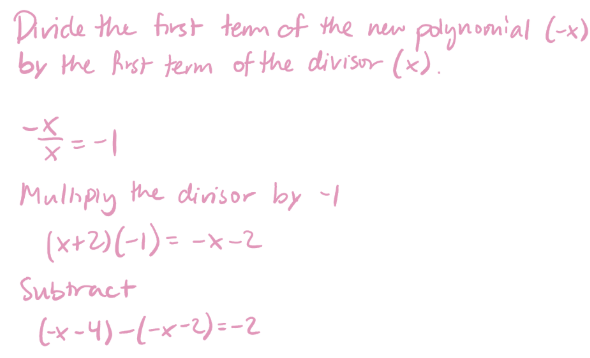 Divide the first term of the new polynomial (-x)
by the first term of the divisor (x).
-x/x = -1
Multiply the divisor by -1
(x+2)(-1) = -x-2
Subtract
(-x-4)-(-x-2)=-2